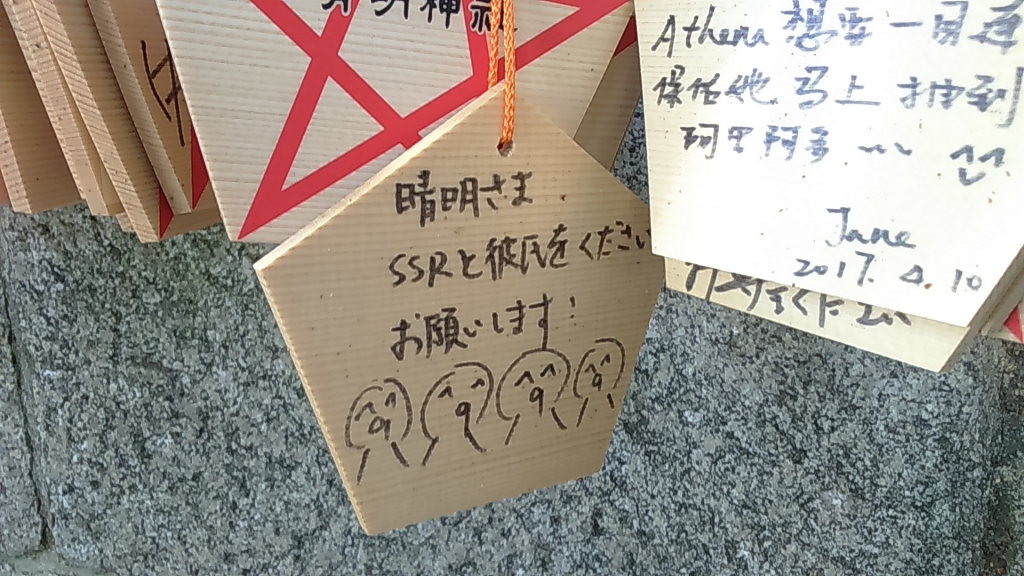 神社
晴明さま
SSRと彼氏をください
お願いします!
Athena 想要一目連
保佑她马上抽到
阿里阿多~~ ^^
Jane
2017.4.10
ください